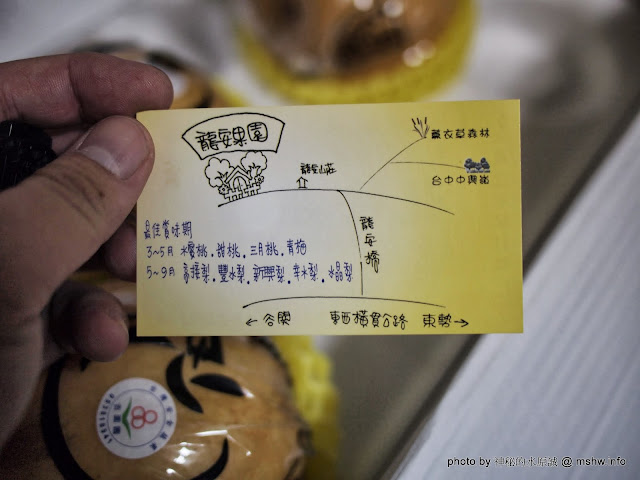 龍安果園
薰衣草森林
龍安山莊
台中中興嶺
龍安橋
最佳嘗味期
3~5月 水蜜桃.甜桃.三月桃.青梅
5~9月 高接梨.豐水梨.新興梨.幸水梨.水晶梨
←谷關 東西橫貫公路 東勢→
photo by 神秘的水底誠 @ mshw.info